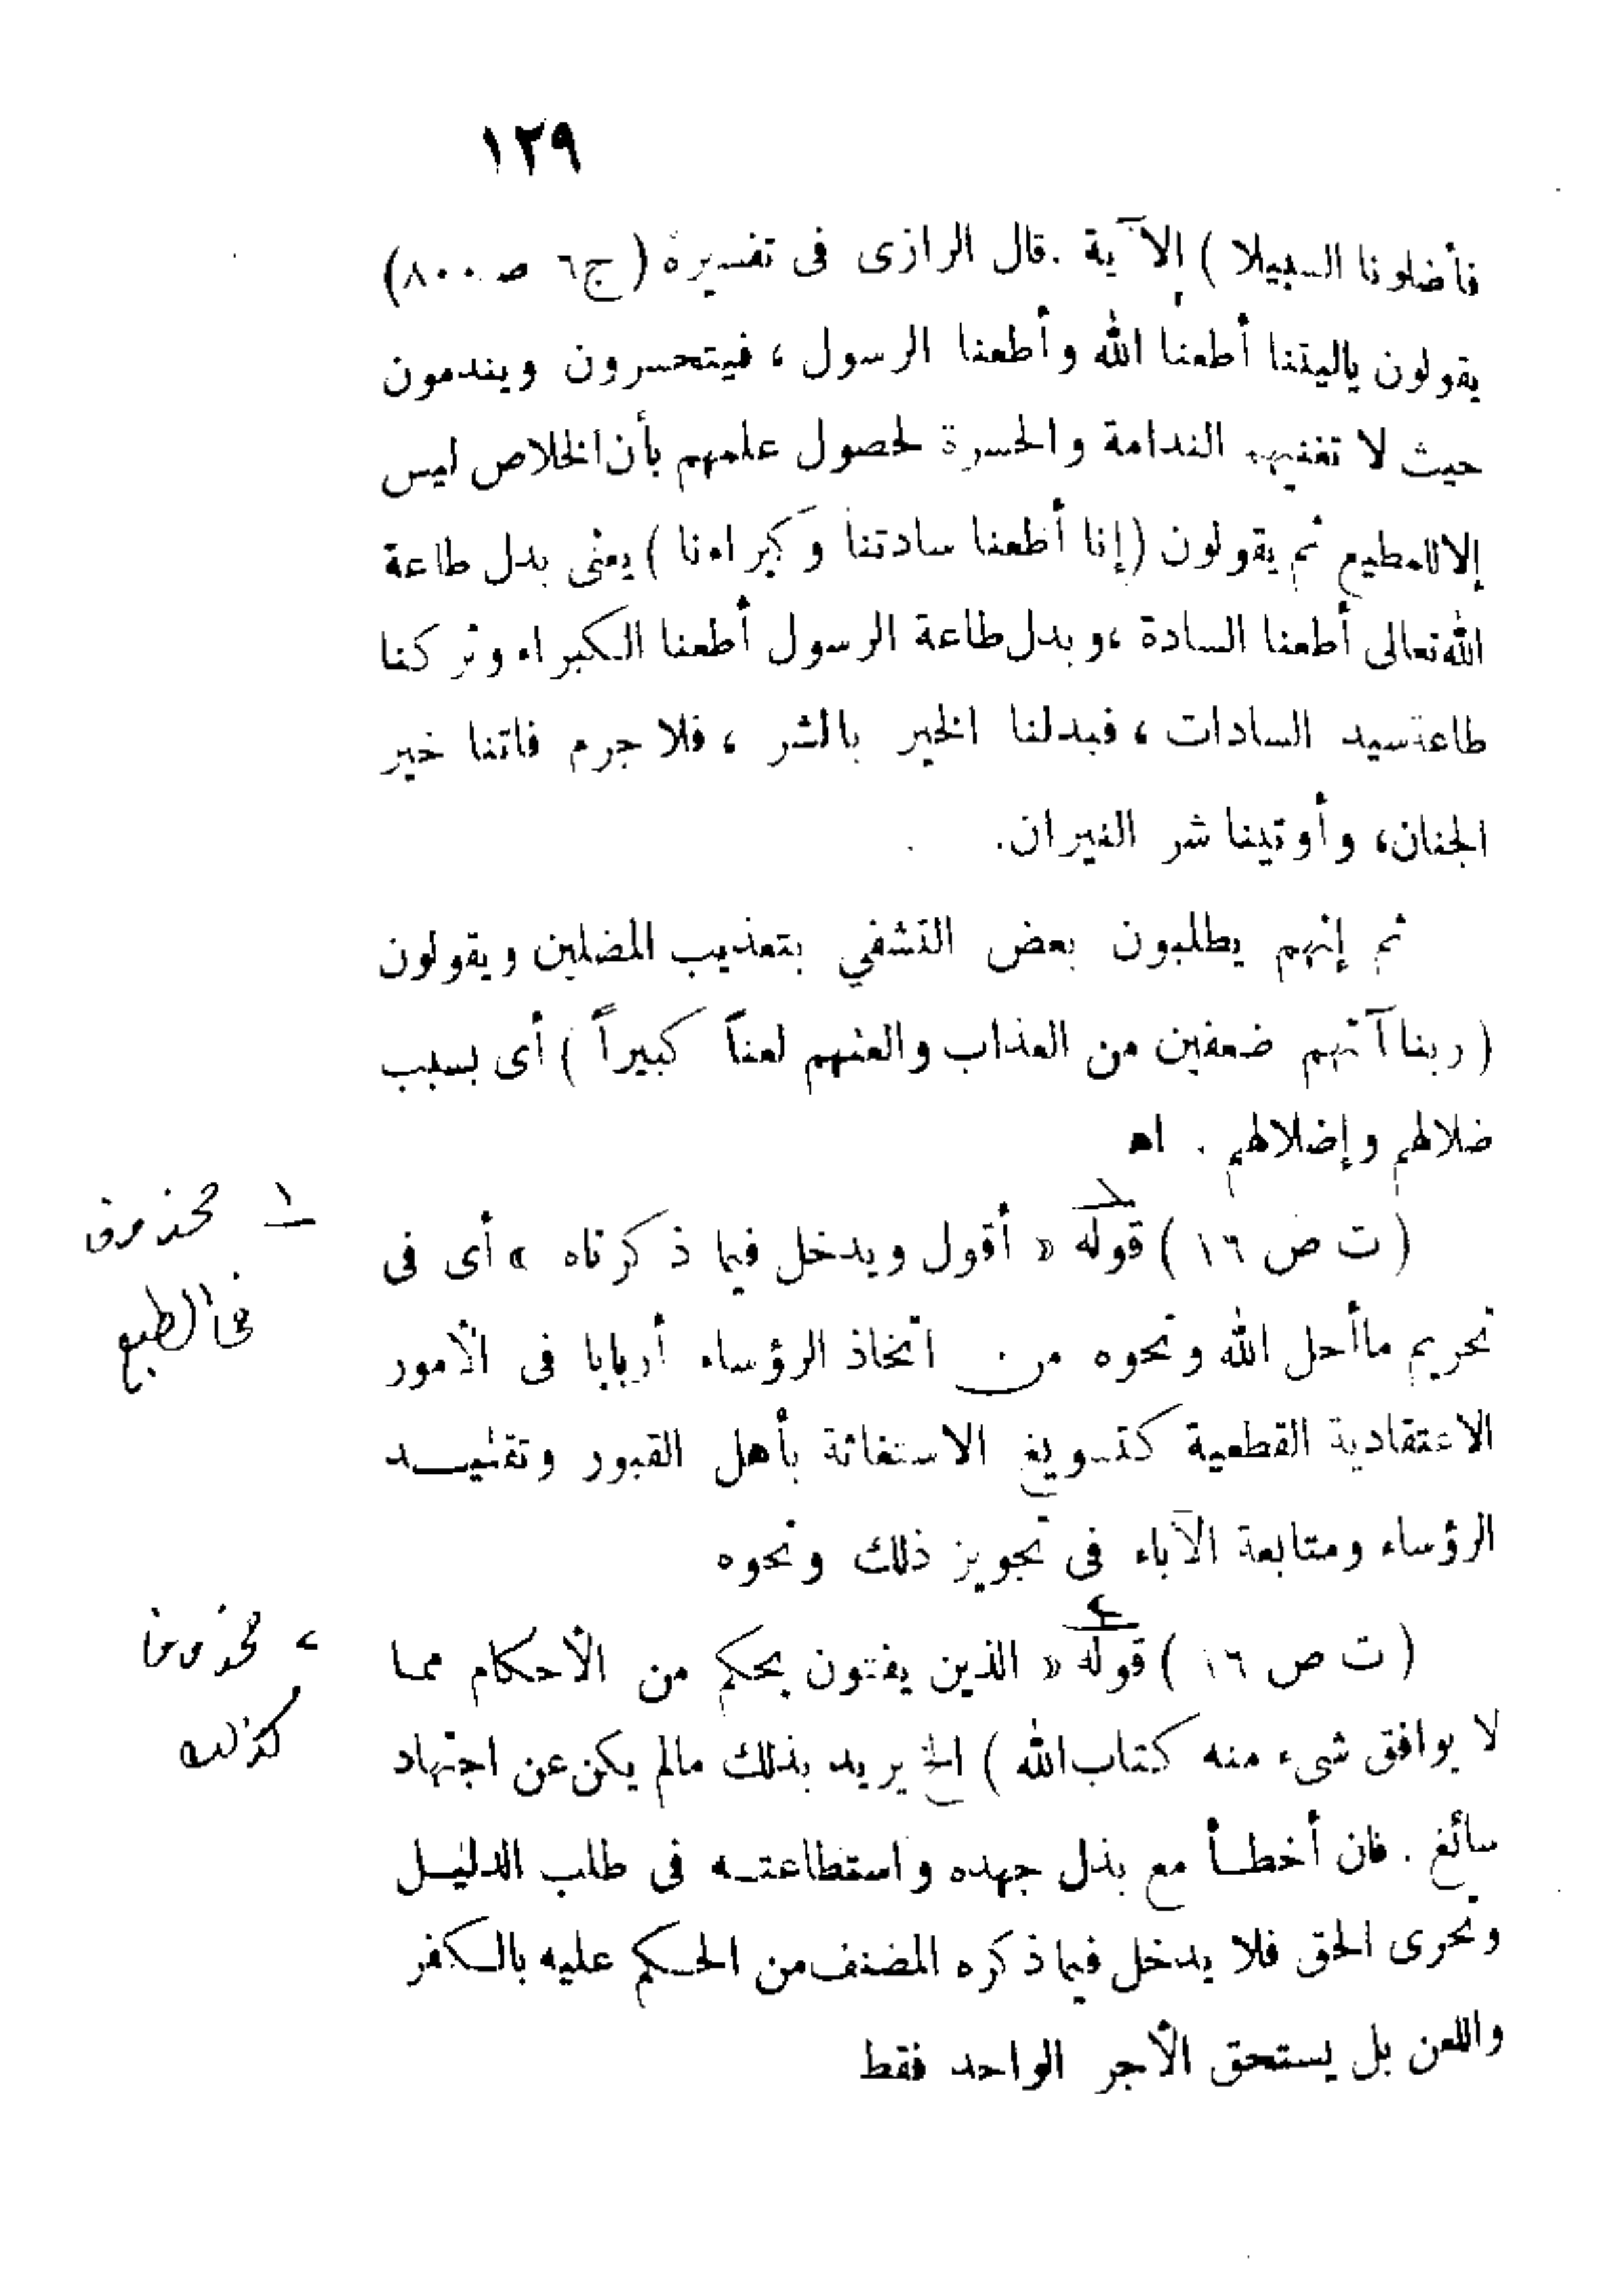 ١٢٩
فأضلونا السبيلا ) الآية . قال الرازى فى تفسيره ( ج٦ ص ٨٠٠)
يقولون ياليتنا أطعنا الله وأطعنا الرسول ، فيتحسرون ويندمون
حيث لا تغنيهم الندامة والحسرة لحصول علمهم بأن الخلاص ليس
إلا للمطيع ثم يقولون (إنا أطعنا سادتنا وكبراءنا ) يعنى بدل طاعة
الله تعالى أطعنا السادة ، وبدل طاعة الرسول أطعنا الكبراء وتركنا
طاعة سيد السادات ، فبدلنا الخير بالشر ، فلا جرم فاتنا خير
الجنان ، وأوتينا شر النيران .
ثم إنهم يطلبون بعض التشفي بتعذيب المضلين ويقولون
( ربنا آتهم ضعفين من العذاب والعنهم لعناً كبيراً ) أى بسبب
ضلالهم وإضلالهم . اه
( ت ص ١٦ ) قوله « أقول ويدخل فيما ذكرناه » أى فى
١ محذوف
فى الطبع
تحريم ماأحل الله ونحوه من اتخاذ الرؤساء أربابا فى الأمور
الاعتقادية القطعية كتسويغ الاستغاثة بأهل القبور وتقليد
الرؤساء ومتابعة الآباء فى تجويز ذلك ونحوه
( ت ص ١٦ ) قوله « الذين يفتون بحكم من الأحكام مما
٢ محذوف
كذلك
لا يوافق شىء منه كتاب الله ) الخ يريد بذلك مالم يكن عن اجتهاد
سائغ . فان أخطأ مع بذل جهده واستطاعته فى طلب الدليل
وتحرى الحق فلا يدخل فيما ذكره المصنف من الحكم عليه بالكفر
واللعن بل يستحق الأجر الواحد فقط